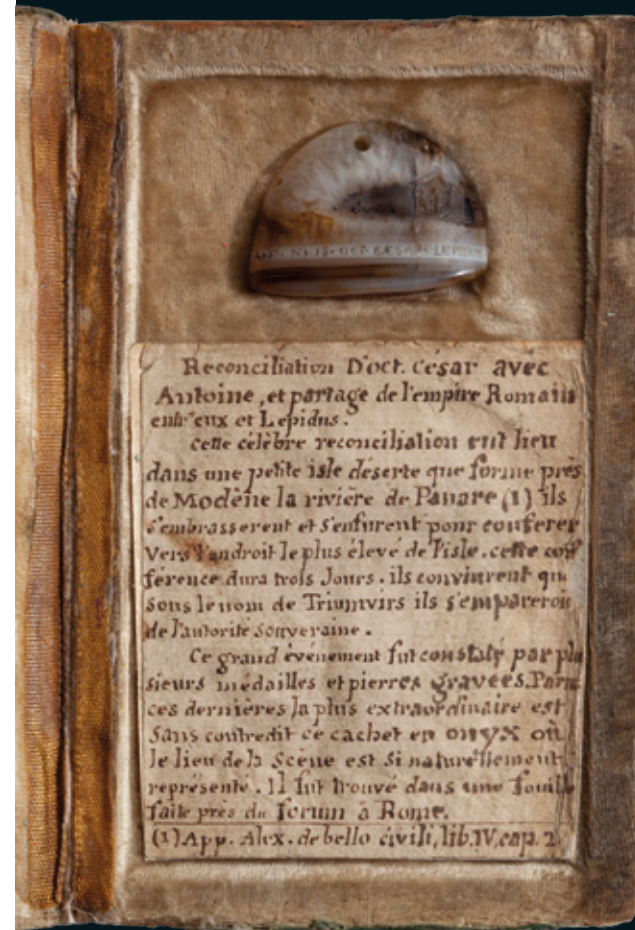 OCT. CÆSAR. LEPID
Reconciliation D'oct. César avec
Antoine, et partage de l'empire Romain
entr'eux et Lepidus.
Cette célèbre reconciliation eut lieu
dans une petite isle déserte que forme près
de Modène la rivière de Panare (1) ils
s'embrasserent et s'enfurent pour conferer
vers l'androit le plus élevé de l'isle. cette con
férence dura trois Jours. ils convinrent que
sous le nom de Triumvirs ils s'empareroi
de l'autorité souveraine.
Ce grand événement fut constaté par plu
sieurs médailles et pierres gravées. Parmi
ces dernières la plus extraordinaire est
sans contredit ce cachet en onyx où
le lieu de la Scène est si naturellement
représenté. Il fut trouvé dans une fouille
faite près du forum à Rome.
(1) App. Alex. de bello civili, lib. IV, cap. 2